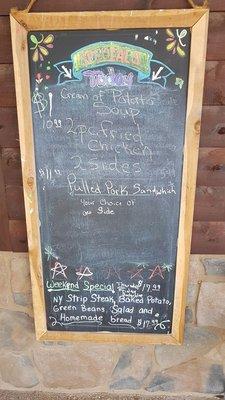 Today
Cream of Potato
Soup
2 pc fried
10.99 Chicken
2 sides
$11.99 Pulled Pork Sandwhich
Your Choice of
one Side
Weekend Special Thursday $17.99
Friday
NY Strip Steak, Baked Potato,
Green Beans, Salad and
2 Homemade bread $17.99